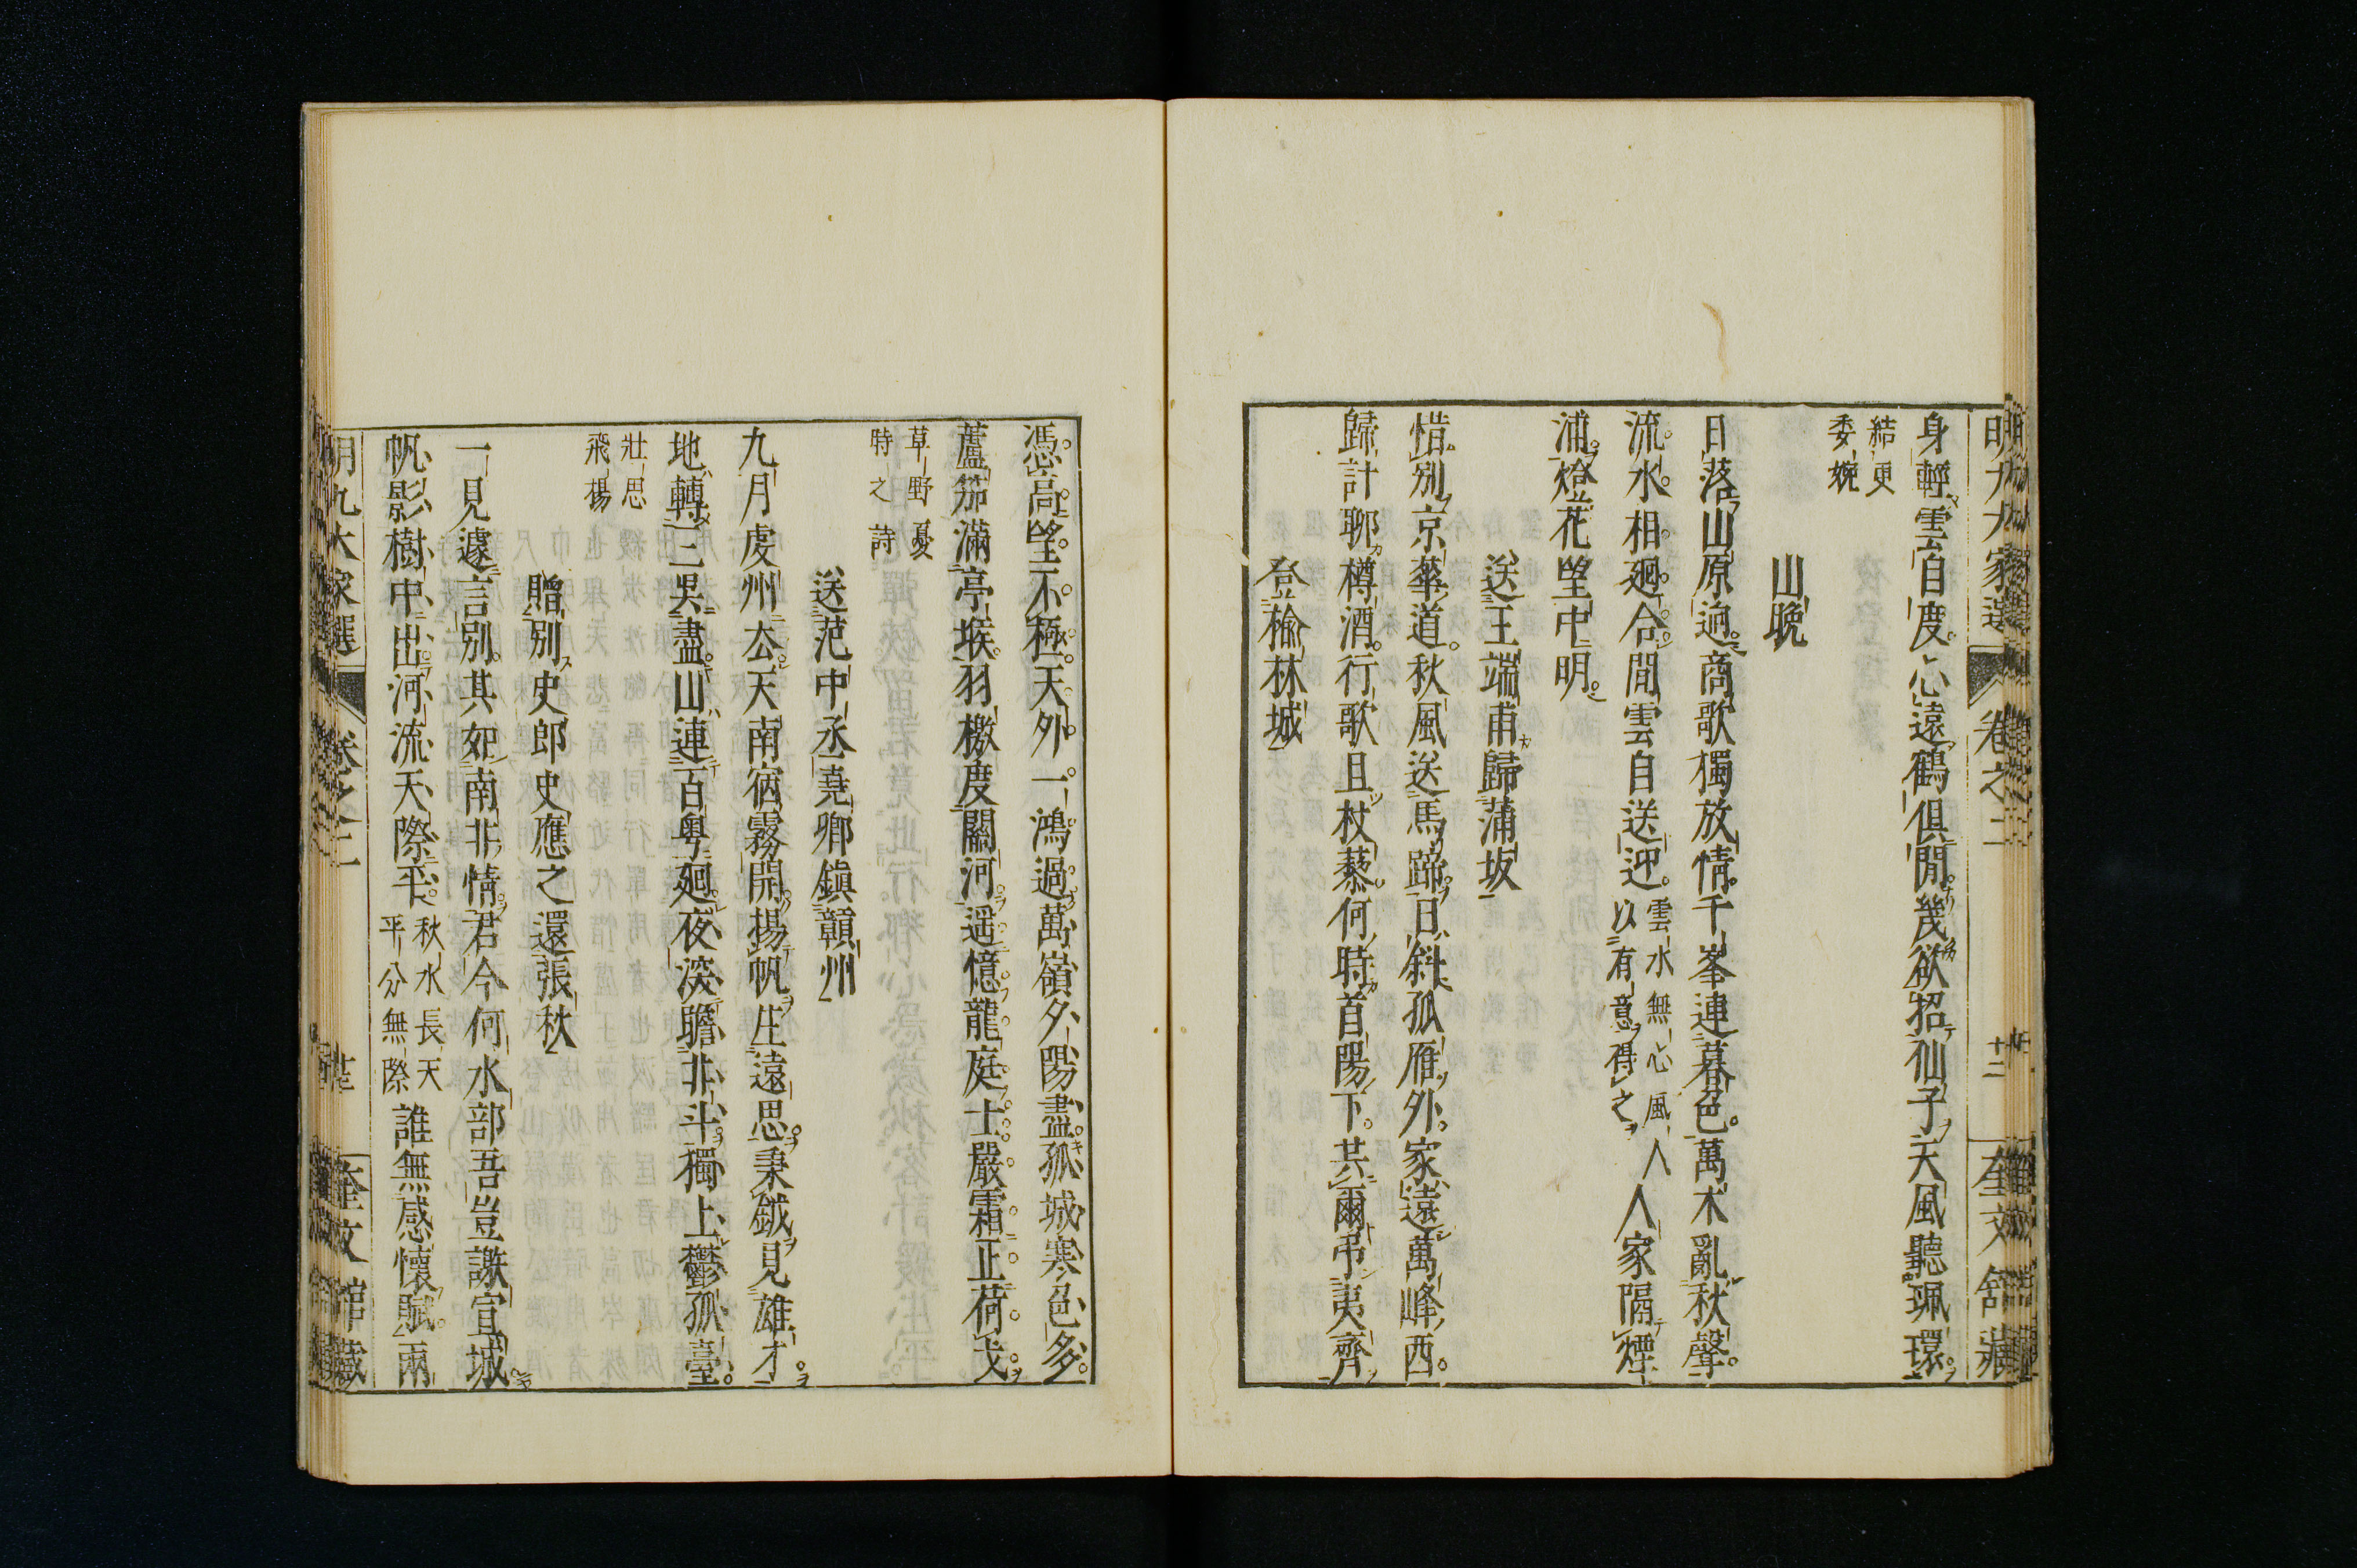 身輕雲自度心遠鶴俱閒幾欲招仙子天風聽珮環
結更
委婉
山晚
日落山原逈商歌獨放情千峯連暮色萬木亂秋聲
流水相廻合間雲自送迎
雲水無心風人
以有意得之
人家隔煙
浦燈花望中明
送王端甫歸蒲坂
惜別京華道秋風送馬蹄日斜孤雁外家遠萬峰西
歸計聊樽酒行歌且杖藜何時首陽下共爾弔夷齊
登榆林城
憑高望不極天外一鴻過萬嶺夕陽盡孤城寒色多
蘆笳滿亭堠羽檄度關河遥憶龍庭士嚴霜正荷戈
草野憂
時之詩
送范中丞堯卿鎮贛州
九月虔州去天南宿霧開揚帆生遠思秉鉞見雄才
地轉三吳盡山連百粤廻夜深瞻北斗獨上鬱孤臺
壯思
飛揚
贈別史郎史應之還張秋
一見遽言別其如南北情君今何水部吾豈謝宣城
帆影樹中出河流天際平
秋水長天
平分無際
誰無感懷賦兩
明九大家選
卷之二
奎文館藏